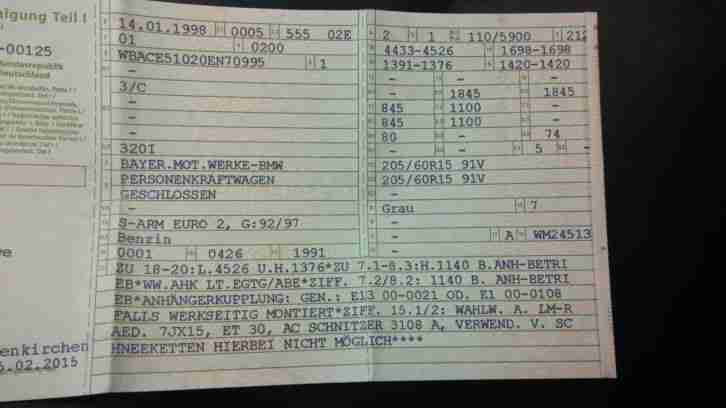 nigung Teil I
-00125
Bundesrepublik
Deutschland
14.01.1998 0005 555 02E
01 0200
WBACE51020EN70995 1
-
3/C
-
-
-
320I
BAYER.MOT.WERKE-BMW
PERSONENKRAFTWAGEN
GESCHLOSSEN
-
S-ARM EURO 2, G:92/97
Benzin
0001 0426 1991
2 1 110/5900 212
4433-4526 1698-1698
1391-1376 1420-1420
- - -
- 1845 1845
845 1100 -
845 1100 -
80 - 74
- - 5 -
205/60R15 91V
205/60R15 91V
-
Grau 7
-
- A WM24513
-
ZU 18-20:L.4526 U.H.1376*ZU 7.1-8.3:H.1140 B.ANH-BETRI
EB*WW.AHK LT.EGTG/ABE*ZIFF. 7.2/8.2: 1140 B. ANH-BETRI
EB*ANHÄNGERKUPPLUNG: GEN.: E13 00-0021 OD. E1 00-0108
FALLS WERKSEITIG MONTIERT*ZIFF. 15.1/2: WAHLW. A. LM-R
AED. 7JX15, ET 30, AC SCHNITZER 3108 A, VERWEND. V. SC
HNEEKETTEN HIERBEI NICHT MÖGLICH****
ve
enkirchen
6.02.2015